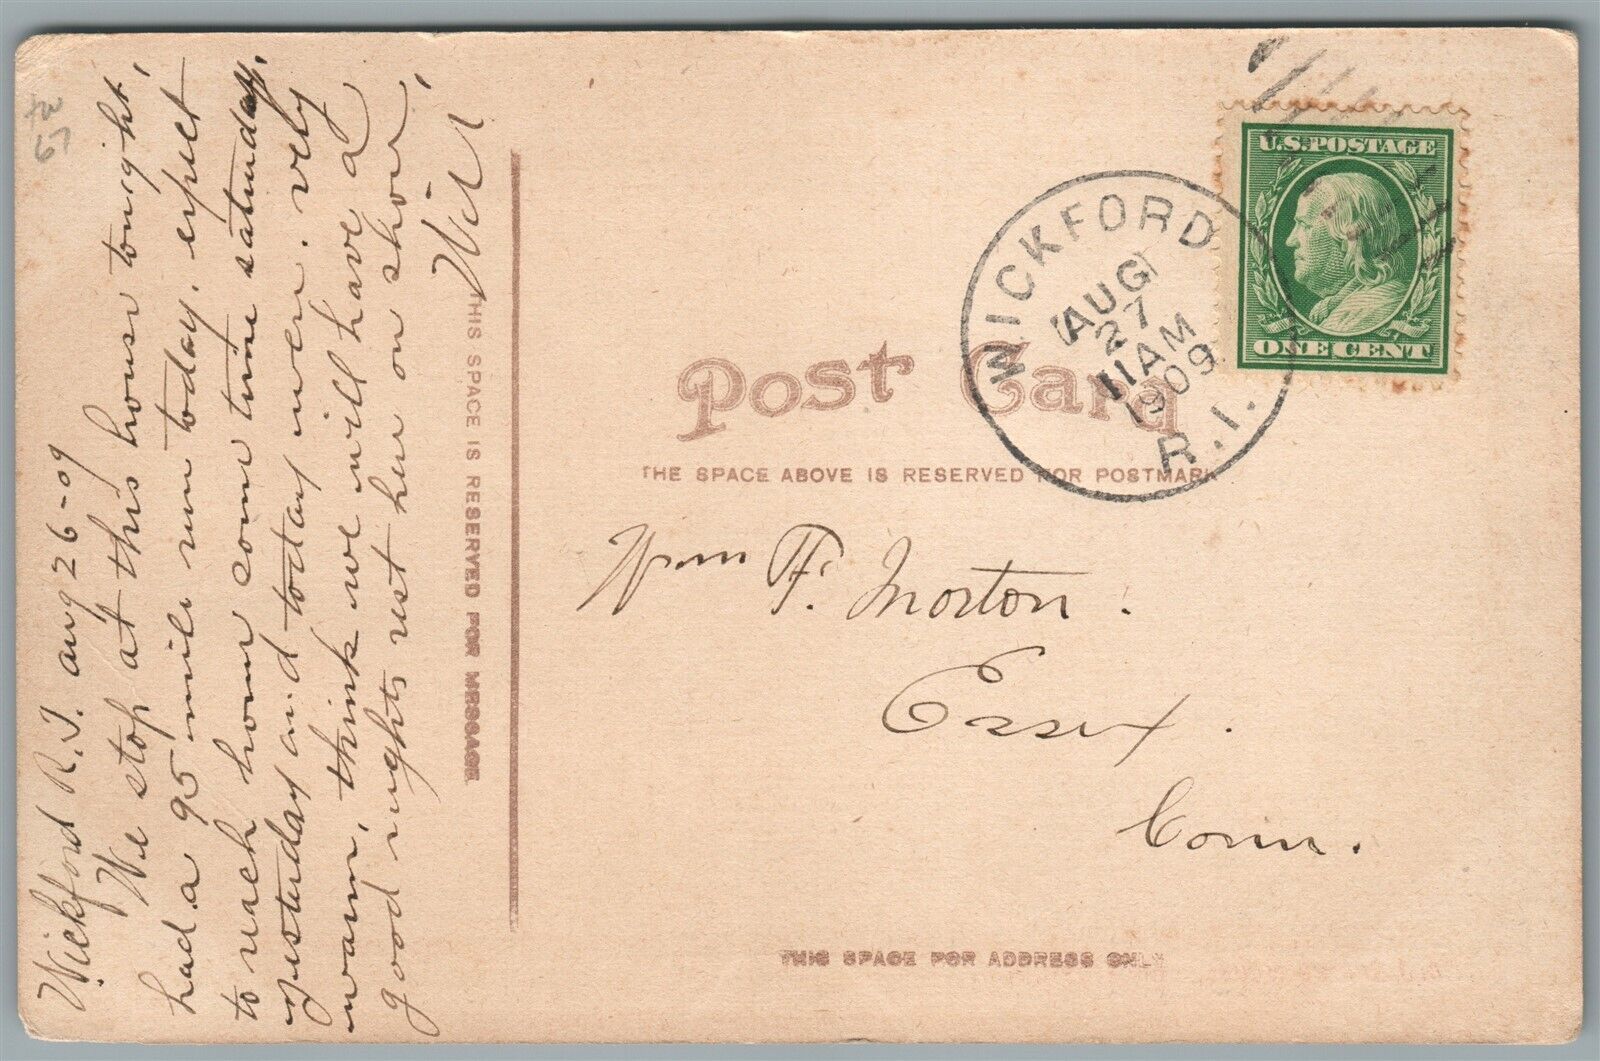 Wickford R.I. aug 26-09
We stop at this house tonight,
had a 95 mile run today. expect
to reach home some time saturday.
yesterday and today were very
warm, think we will have a
good nights rest here on shore,
Will
THIS SPACE IS RESERVED FOR MESSAGE
67
U.S. POSTAGE
ONE CENT
WICKFORD
AUG
27
11 AM
1909
R.I.
Post Card
THE SPACE ABOVE IS RESERVED FOR POSTMARK
Wm F. Morton.
Essex.
Conn.
THIS SPACE FOR ADDRESS ONLY